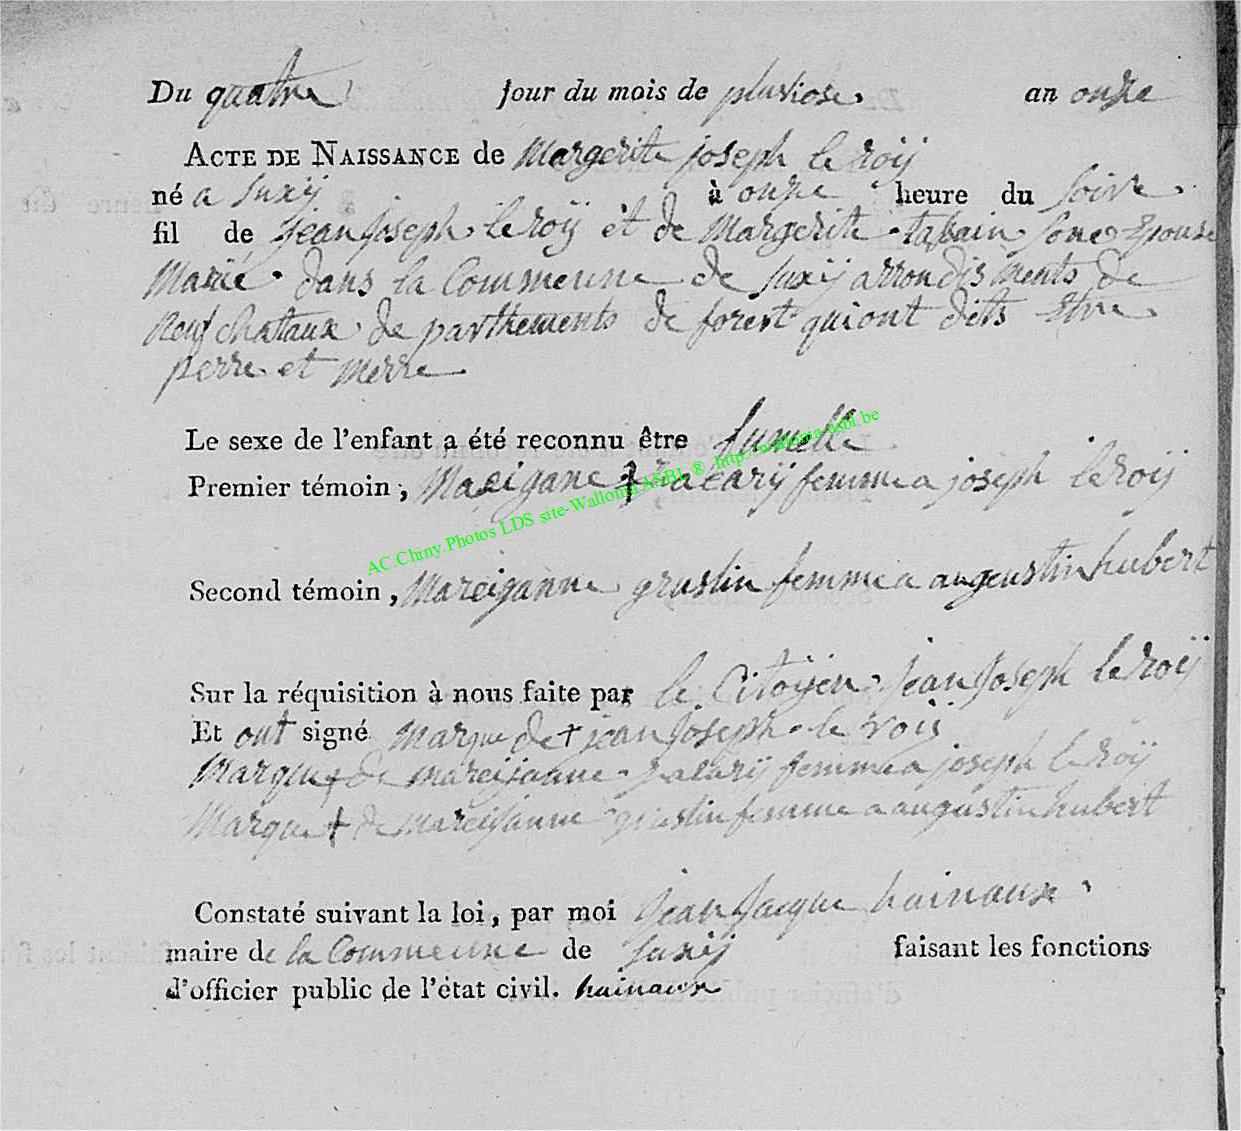 Du quatre jour du mois de pluviose an onze
ACTE DE NAISSANCE de Margerite joseph le roÿ
né a Suxÿ à onze heure du soire
fil de jean joseph le roÿ et de Margerite sone Epouse
Marié dans la Commeune de Suxÿ arrondisments de
neufchataux de parthements de forest qui ont dits Etre
perre et merre
Le sexe de l'enfant a été reconnu être fumelle
Premier témoin, femme a joseph le roÿ
Second témoin, Mareiganne gruslin femme a augeustin hubert
Sur la réquisition à nous faite par le Citoÿen jean joseph le roÿ
Et ont signé marque de + jean joseph le roÿ
Marque + de mareijanne femme a joseph le roÿ
Marque + de mareijanne gruslin femme a augustin hubert
Constaté suivant la loi, par moi jean jacque hainaux
maire de la Commeune de Suxÿ faisant les fonctions
d'officier public de l'état civil. hainaux
AC.Chiny.Photos LDS site-Wallonia ASBL ® -http://wallonia-asbl.be